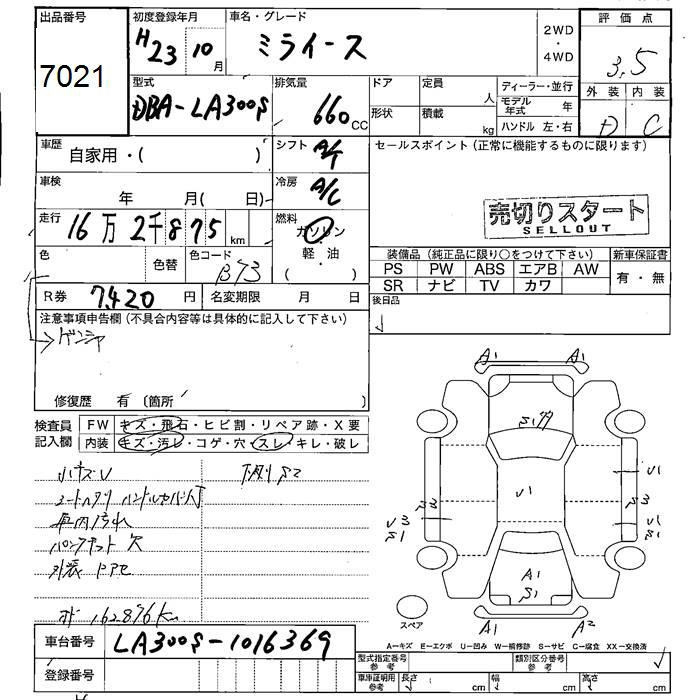 出品番号
7021
初度登録年月
H23 10月
車名・グレード
ミライース
2WD
・
4WD
評価点
3.5
外装 内装
D C
型式
DBA-LA300S
排気量
660cc
ドア
形状
定員 人
積載 kg
ディーラー・並行
モデル年式 年
ハンドル 左・右
車歴
自家用・( )
シフト
A/T
セールスポイント(正常に機能するものに限ります)
売切りスタート
SELLOUT
車検
年 月( 日)
冷房
A/C
走行
16万2千875km
燃料
ガソリン
・
軽・油
( )
色
色替
色コード
B73
装備品(純正品に限り○をつけて下さい)
新車保証書
PS PW ABS エアB AW
SR ナビ TV カワ
有・無
R券 7420円
名変期限 月 日
後日品
注意事項申告欄(不具合内容等は具体的に記入して下さい)
ゲンシャ
修復歴 有(箇所 )
検査員記入欄
FW キズ・飛石・ヒビ割・リペア跡・X要
内装 キズ・汚レ・コゲ・穴・スレ・キレ・破レ
小キズU
下廻りS2
車内汚れ
欠
162876km
車台番号
LA300S-1016369
登録番号
A1 A1
U1
U1
U3
S1
U1
S1
A1
S1
A1 A2
スペア
A—キズ E—エクボ U—凹み W—補修跡 S—サビ C—腐食 XX—交換済
型式指定番号参考
類別区分番号参考
車庫証明用参考
長さ cm
幅 cm
高さ cm